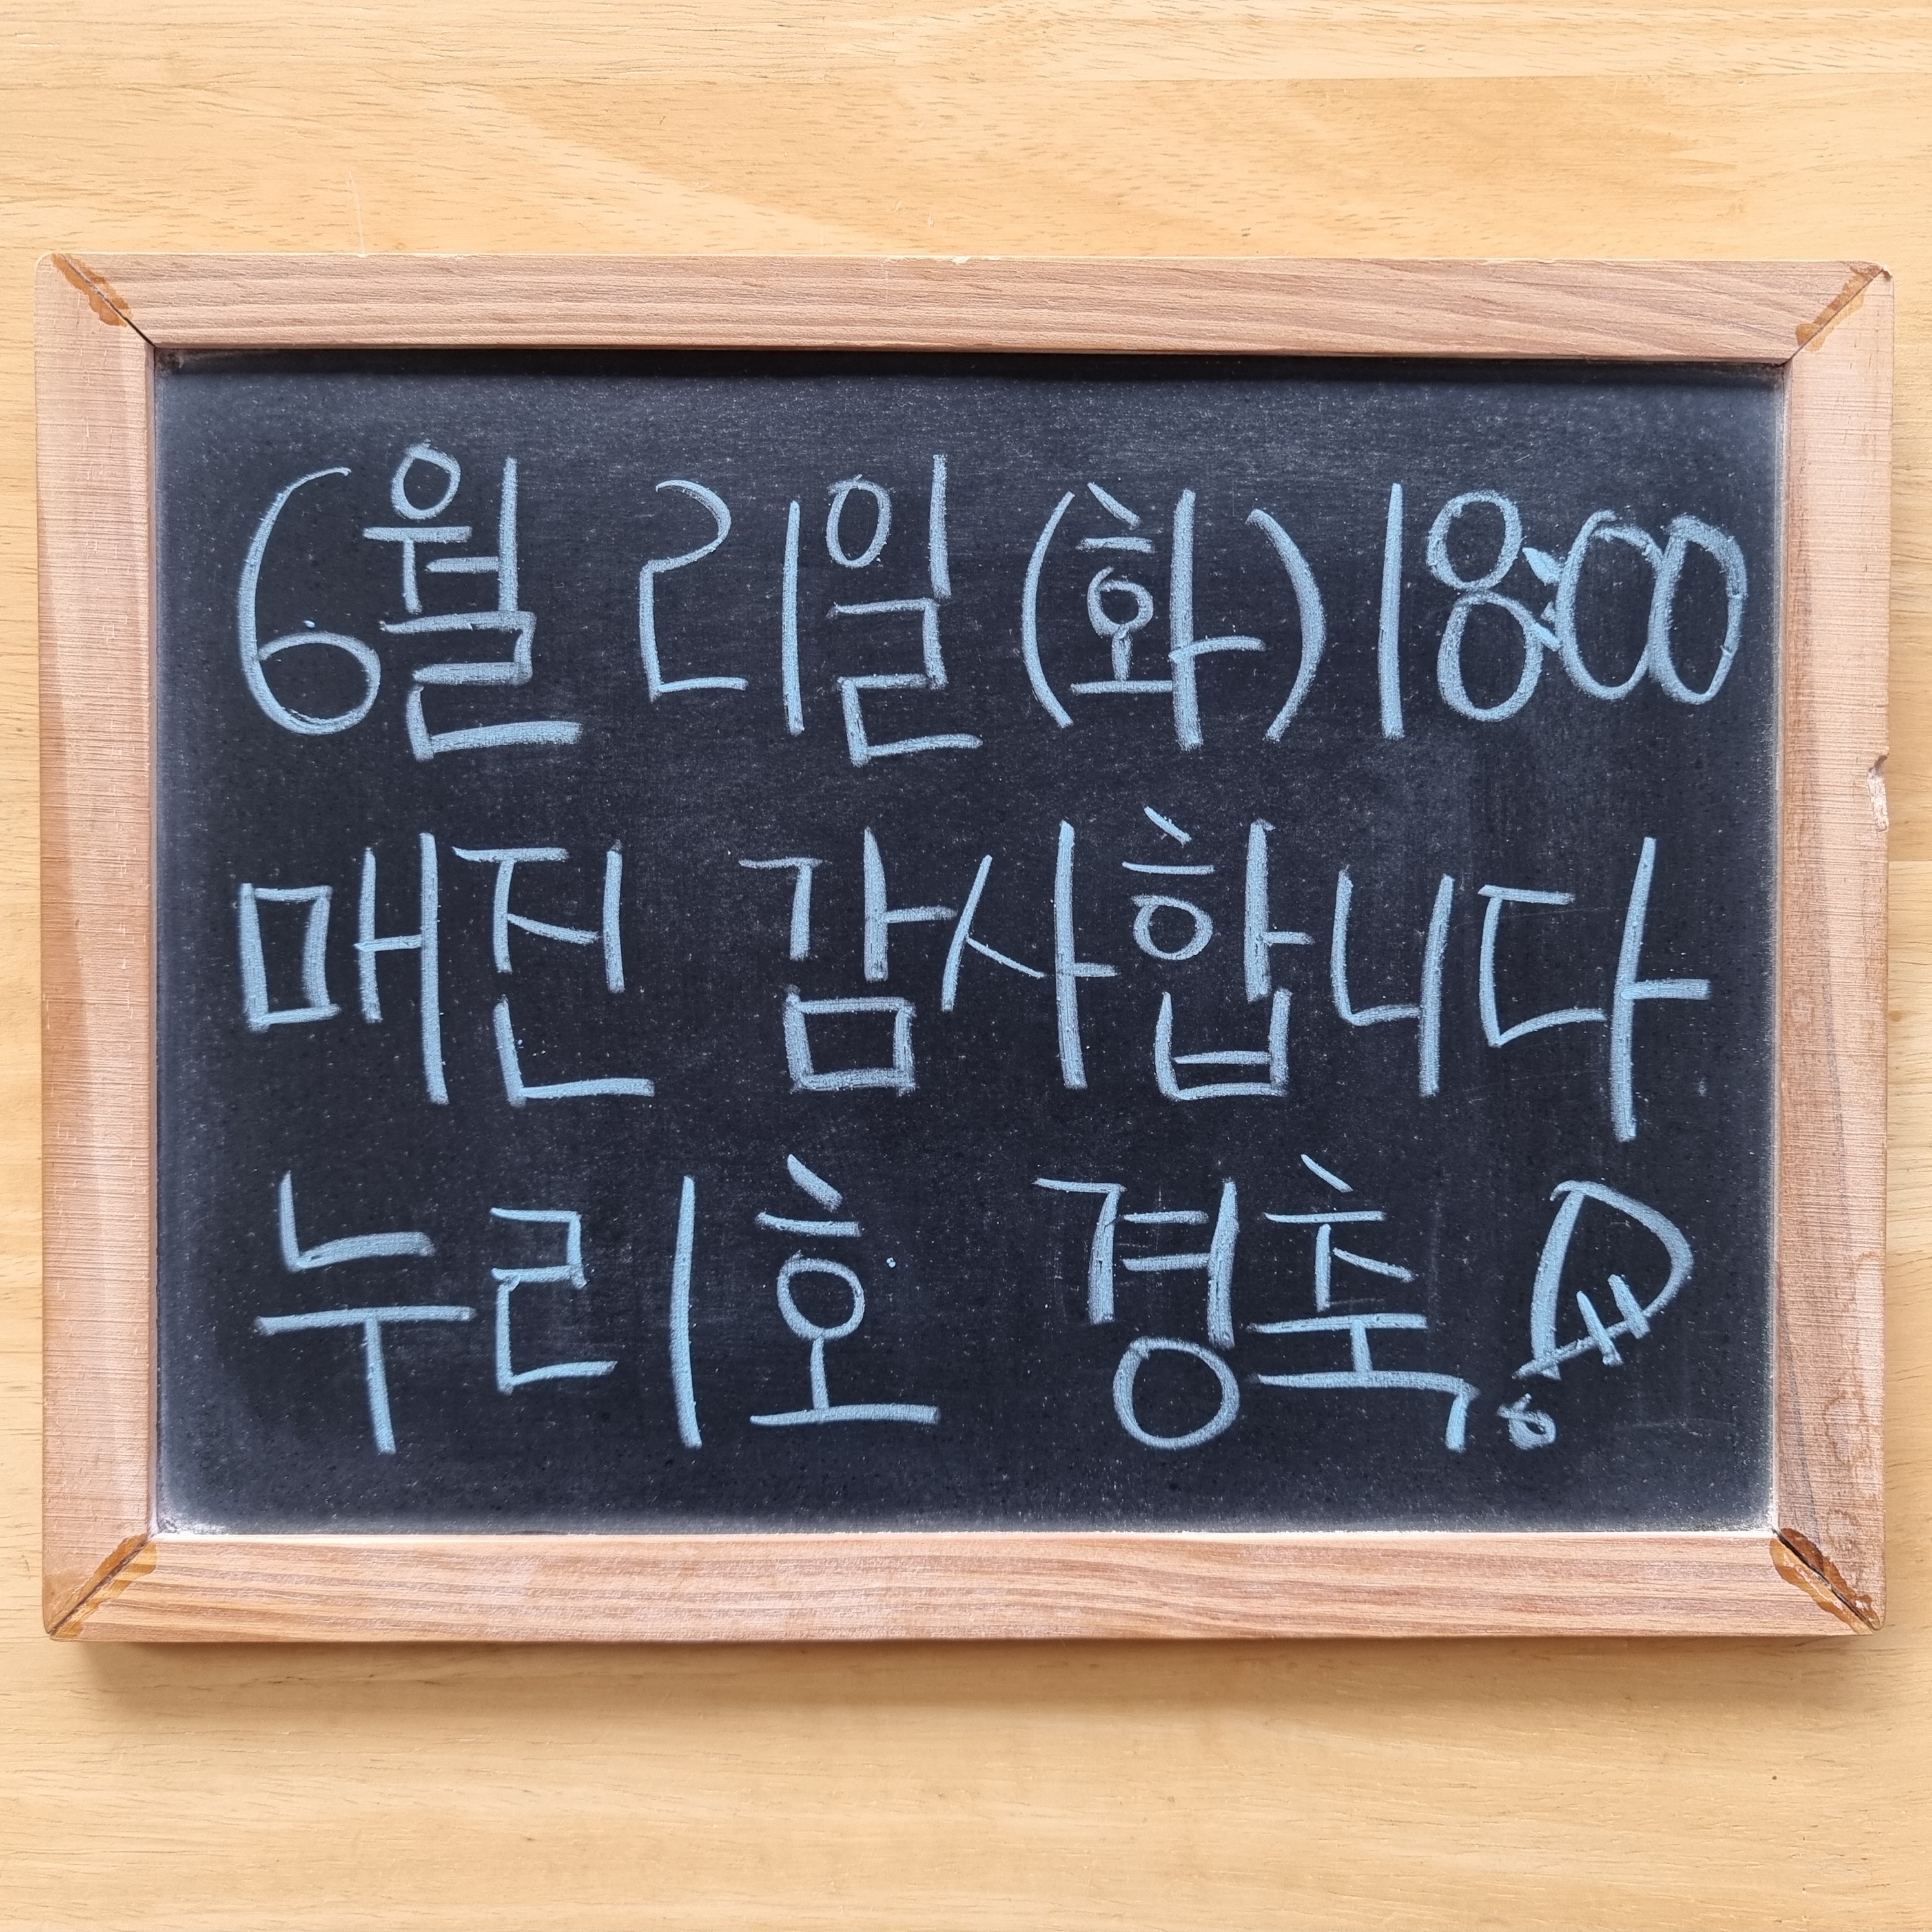 6월 21일 (화) 18:00
매진 감사합니다
누리호 경축